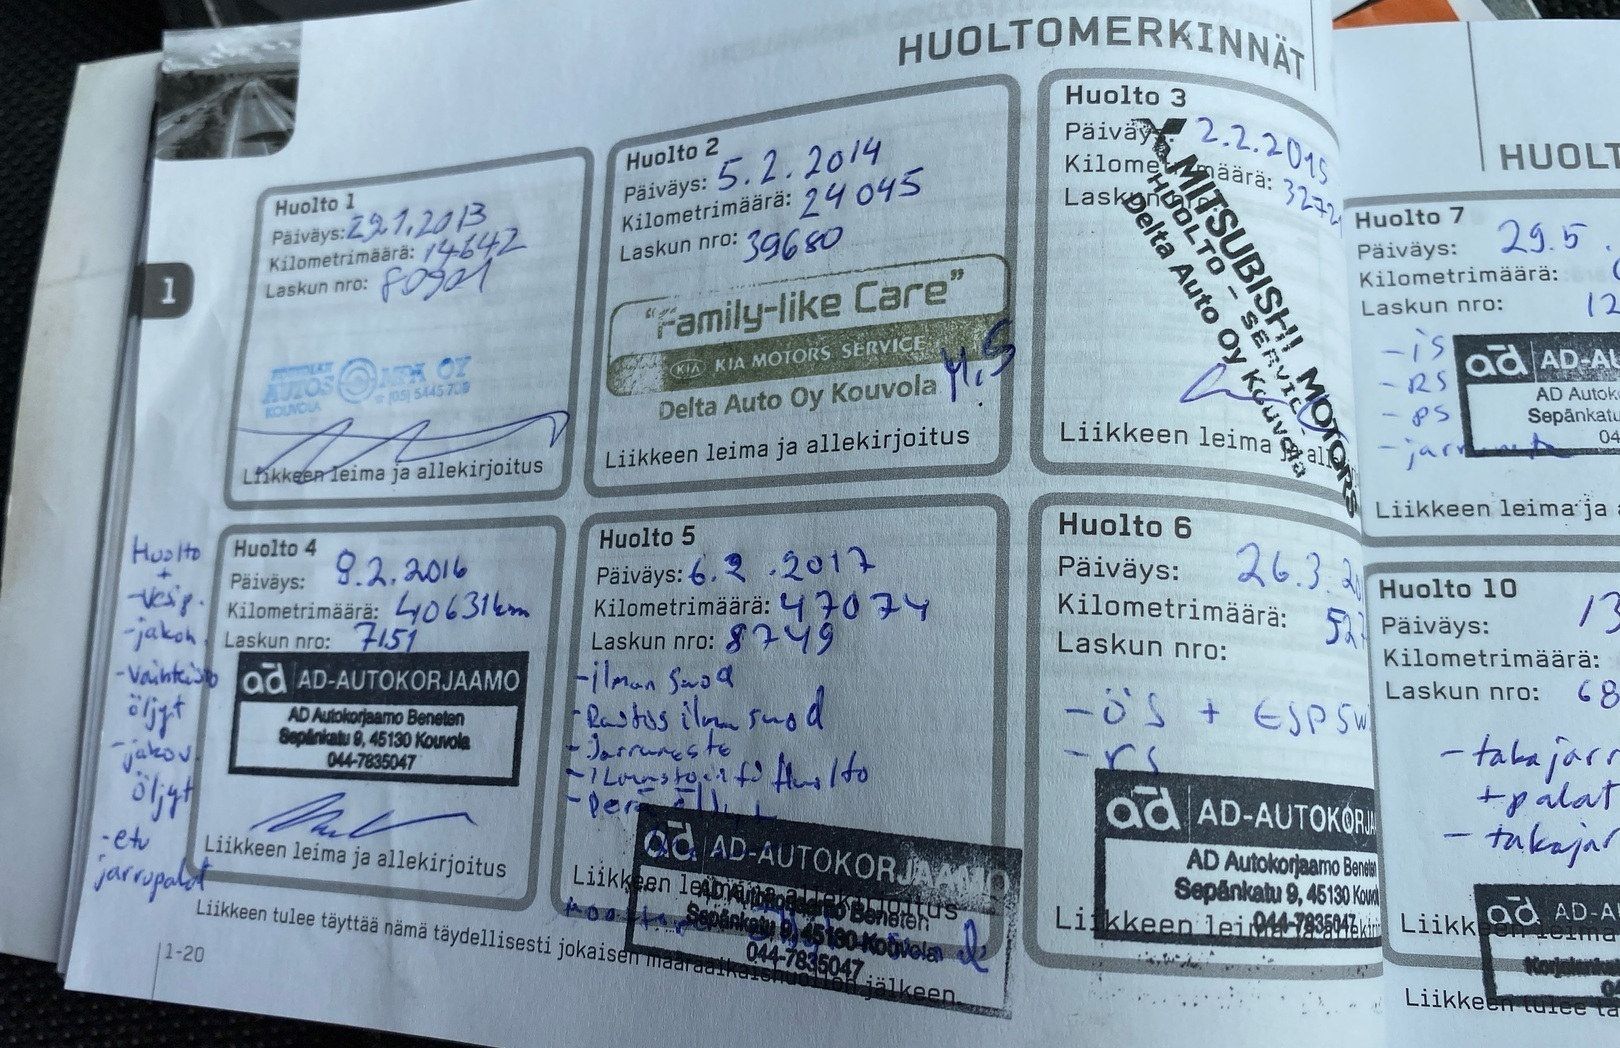 HUOLTOMERKINNÄT
1
Huolto 1
Päiväys: 29.1.2013
Kilometrimäärä: 14642
Laskun nro: 80901
AUTOS
KOUVOLA
(05) 5445 708
Liikkeen leima ja allekirjoitus
Huolto 2
Päiväys: 5.2.2014
Kilometrimäärä: 24045
Laskun nro: 39680
"Family-like Care"
KIA KIA MOTORS SERVICE
Delta Auto Oy Kouvola
Liikkeen leima ja allekirjoitus
Huolto 3
Päiväys: 2.2.2015
Kilometrimäärä: 3272
Laskun
MITSUBISHI MOTORS
HUOLTO - SERVICE
Delta Auto Oy Kouvola
Liikkeen leima
Huolto
+
-vesip.
-jakoh.
-vaihteisto
öljyt
-jakov.
öljyt
-etu
jarrupalat
Huolto 4
Päiväys: 9.2.2016
Kilometrimäärä: 40631km
Laskun nro: 7151
ad AD-AUTOKORJAAMO
AD Autokorjaamo Beneten
Sepänkatu 9, 45130 Kouvola
044-7835047
Liikkeen leima ja allekirjoitus
Huolto 5
Päiväys: 6.2.2017
Kilometrimäärä: 47074
Laskun nro: 8749
-ilman suod
-Raitis ilm suod
-Jarruneste
-Ilmastointi Huolto
ad AD-AUTOKORJAAMO
AD Autokorjaamo Beneten
Sepänkatu 9, 45130 Kouvola
044-7835047
Liikkeen leima ja allekirjoitus
Huolto 6
Päiväys: 26.3.20
Kilometrimäärä: 527
Laskun nro:
-ös + ESP 5W
-rs
ad AD-AUTOKORJA
AD Autokorjaamo Beneten
Sepänkatu 9, 45130 Kouvol
044-7835047
Liikkeen leima ja allekir
Liikkeen tulee täyttää nämä täydellisesti jokaisen määräaikaishuollon jälkeen.
1-20
HUOLT
Huolto 7
Päiväys: 29.5.
Kilometrimäärä:
Laskun nro: 12
-is
-RS
-ps
ad AD-AU
AD Autok
Sepänkatu
04
Liikkeen leima ja a
Huolto 10
Päiväys: 13
Kilometrimäärä:
Laskun nro: 68
-takajarr
+palat
-takajar
ad AD-A
Liikkeen leima
Liikkeen tulee tä